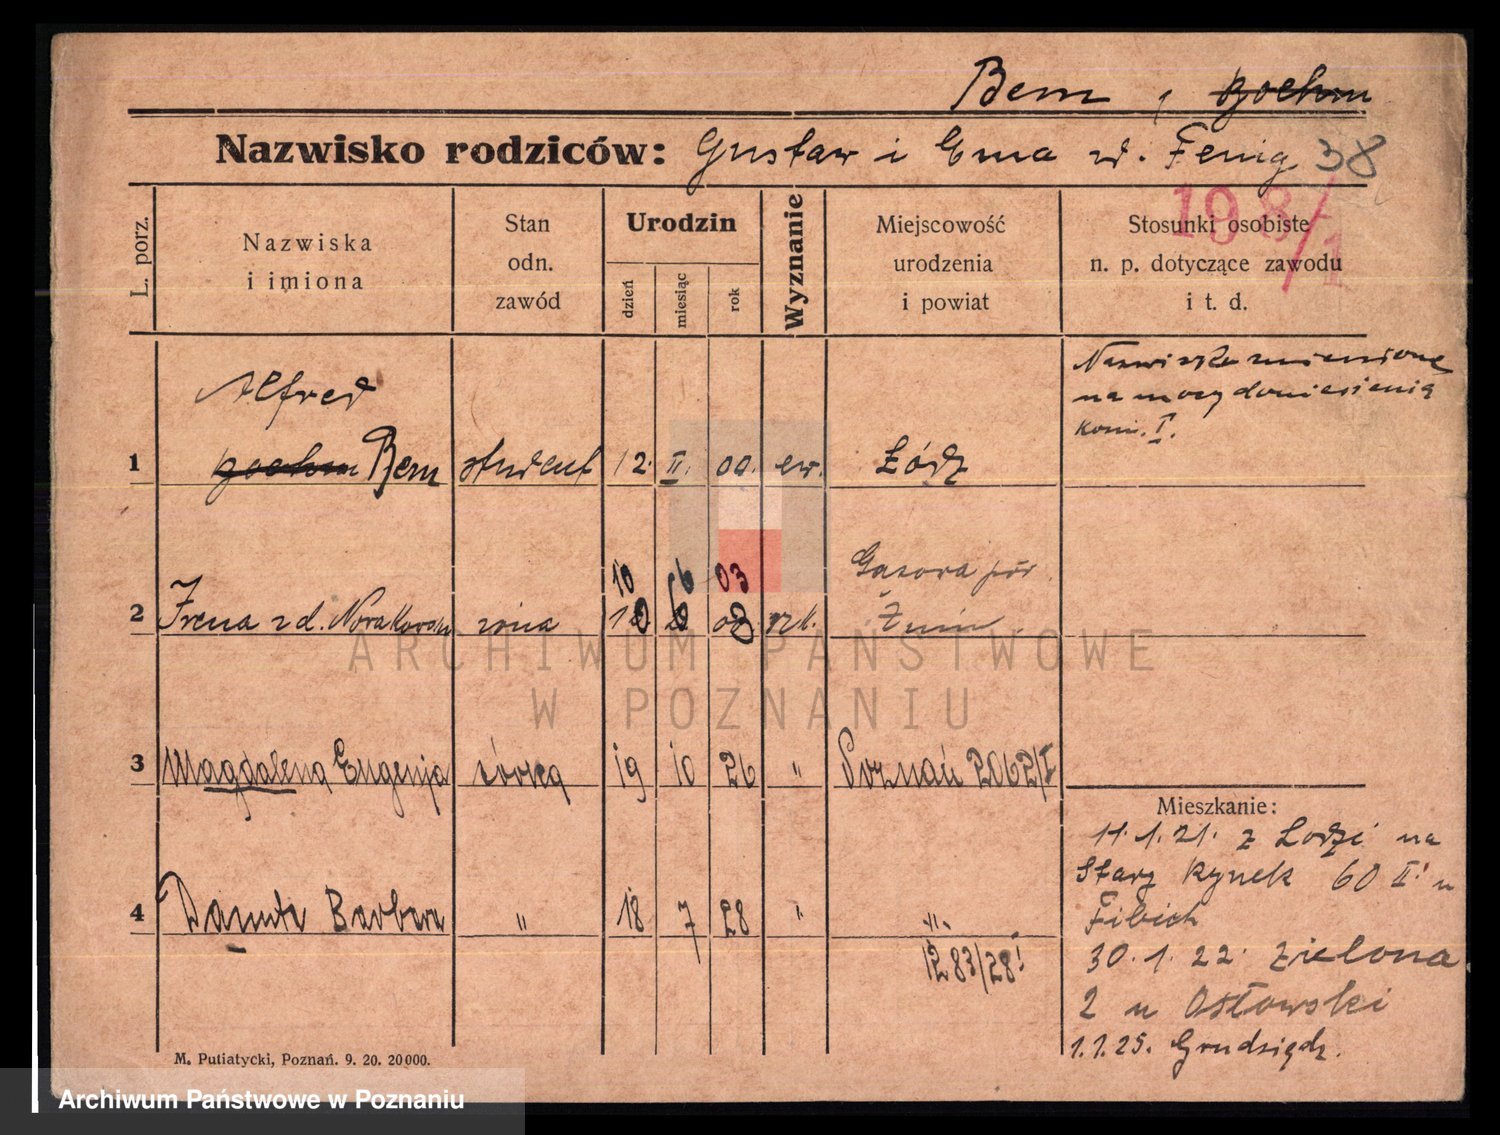 Bem, Boehm
Nazwisko rodziców: Gustaw i Ema zd. Fenig 38
198/1
L. porz.
Nazwiska
i imiona
Stan
odn.
zawód
Urodzin
dzień
miesiąc
rok
Wyznanie
Miejscowość
urodzenia
i powiat
Stosunki osobiste
n. p. dotyczące zawodu
i t. d.
Nazwisko zmienione
na mocy doniesienia
kom. I.
Alfred
1 Boehm Bem student 12. II. 00. ew. Łódź
10 6 03 Gąsawa pow.
2 Irena zd. Nowakowska żona 10 6 03 rzk. Żnin
3 Magdalena Eugenja córka 19 10 26 " Poznań 2062/I
4 Danuta Barbara " 18 7 28 " "
1283/28 I
Mieszkanie:
11.1.21. z Łodzi na
Stary Rynek 60 II u
Fibich
30.1.22. Zielona
2 u Osłowski
1.7.25. Grudziądz.
M. Putiatycki, Poznań. 9. 20. 20 000.
ARCHIWUM PAŃSTWOWE
W POZNANIU
Archiwum Państwowe w Poznaniu